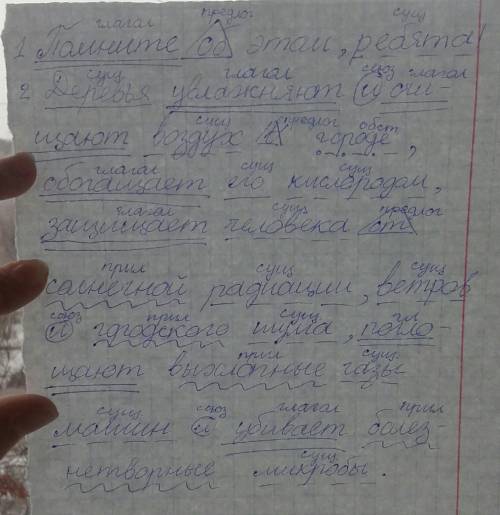 глагол предлог сущ
1 Помните об этом, ребята!
сущ глагол союз глагол
2. Деревья увлажняют и очи-
сущ предлог обст
щают воздух в городе,
глагол сущ сущ
обогащает его кислородом,
глагол сущ предлог
защищает человека от
прил сущ сущ
солнечной радиации, ветров
союз прил сущ гл
и городского шума, погло-
прил сущ
щают выхлопные газы
сущ союз глагол прил
машин и убивает болез-
сущ
нетворные микробы.